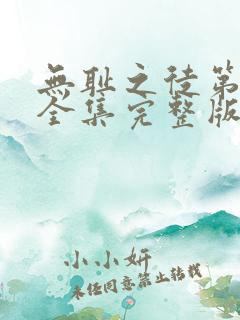 無耻之徒第
全集完整版
小小妍
未经同意禁止转载